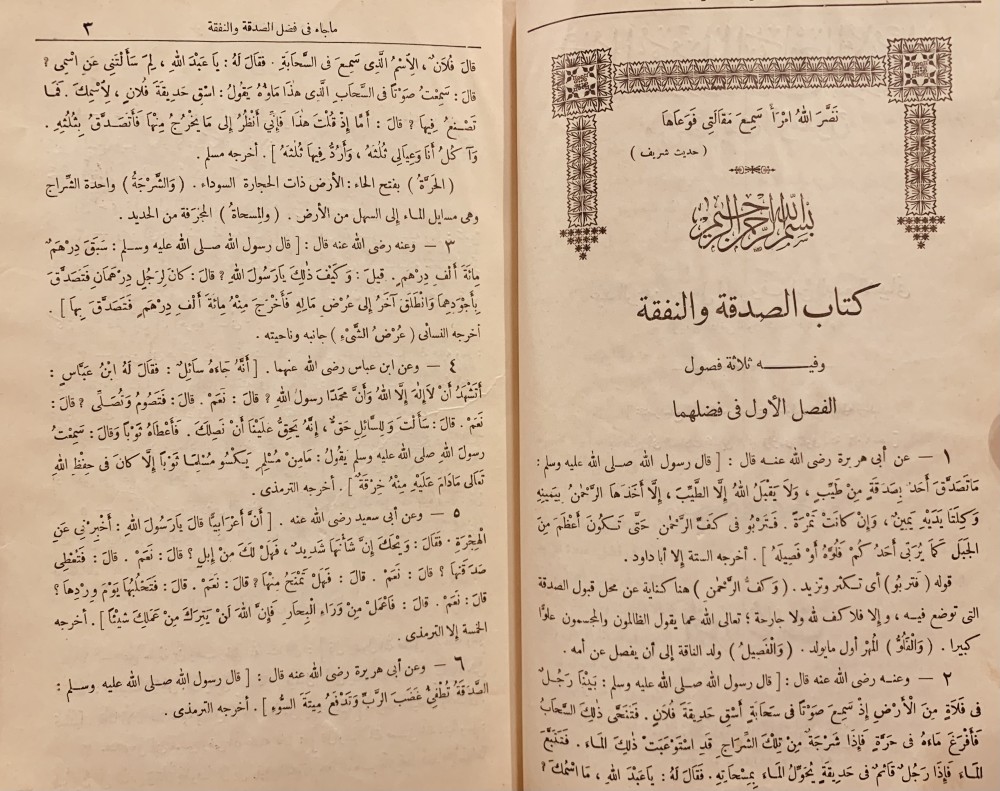 نَضَّرَ اللهُ امْرَأً سَمِعَ مَقَالَتِى فَوَعَاهَا
( حديث شريف )
بسم الله الرحمن الرحيم
كتاب الصدقة والنفقة
وفيه ثلاثة فصول
الفصل الأول فى فضلهما
١ — عن أبى هريرة رضى الله عنه قال : [ قال رسول الله صلى الله عليه وسلم :
مَاتَصَدَّقَ أَحَدٌ بِصَدَقَةٍ مِنْ طَيِّبٍ ، وَلَا يَقْبَلُ اللهُ إِلَّا الطَّيِّبَ ، إِلَّا أَخَذَهَا الرَّحْمٰنُ بِيَمِينِهِ
وَكِلْتَا يَدَيْهِ يَمِينٌ ، وَإِنْ كَانَتْ تَمْرَةً . فَتَرْبُو فى كَفِّ الرَّحْمٰنِ حَتَّى تَكُونَ أَعْظَمَ مِنَ
الجَبَلِ كَمَا يُرَبِّى أَحَدُكُمْ فَلُوَّهُ أَوْ فَصِيلَهُ ] . أخرجه الستة إلا أبا داود .
قوله ( فتربُو ) أى تكثر وتزيد . ( وَكَفُّ الرَّحْمٰنِ ) هنا كناية عن محل قبول الصدقة
التى توضع فيه ، وإلا فلا كف لله ولا جارحة ؛ تعالى الله عما يقول الظالمون والمجسمون علوًّا
كبيرا . ( وَالْفَلُوُّ ) المُهْر أول مايولد . ( وَالْفَصِيلُ ) ولد الناقة إلى أن يفصل عن أمه .
٢ — وعنه رضى الله عنه قال : [ قال رسول الله صلى الله عليه وسلم : بَيْنَا رَجُلٌ
فى فَلَاةٍ مِنَ الْأَرْضِ إِذْ سَمِعَ صَوْتًا فى سَحَابَةٍ أَسْقِ حَدِيقَةَ فُلَانٍ . فَتَنَحَّى ذٰلِكَ السَّحَابُ
فَأَفْرَغَ مَاءَهُ فى حَرَّةٍ فَإِذَا شَرْجَةٌ مِنْ تِلْكَ الشِّرَاجِ قَدِ اسْتَوْعَبَتْ ذٰلِكَ المَاءَ . فَتَتَبَّعَ
المَاءَ فَإِذَا رَجُلٌ قَائِمٌ فى حَدِيقَةٍ يُحَوِّلُ المَاءَ بِمِسْحَاتِهِ . فَقَالَ لَهُ : يَاعَبْدَ اللهِ ، مَا اسْمُكَ ؟
ماجاء فى فضل الصدقة والنفقة ٣
قالَ فُلَانٌ ، الِاسْمُ الَّذِى سَمِعَ فى السَّحَابَةِ . فَقَالَ لَهُ : يَا عَبْدَ اللهِ ، لِمَ سَأَلْتَنِى عَنِ اسْمِى ؟
قالَ : سَمِعْتُ صَوْتًا فى السَّحَابِ الَّذِى هٰذَا مَاؤُهُ يَقُولُ : اسْقِ حَدِيقَةَ فُلَانٍ ، لِاسْمِكَ . فَمَا
تَصْنَعُ فِيهَا ؟ قالَ : أَمَّا إِذْ قُلْتَ هٰذَا فَإِنِّى أَنْظُرُ إِلى مَا يَخْرُجُ مِنْهَا فَأَتَصَدَّقُ بِثُلُثِهِ .
وَآكُلُ أَنَا وَعِيَالِى ثُلُثَهُ ، وَأَرُدُّ فِيهَا ثُلُثَهُ ] . أخرجه مسلم .
( الحَرَّةُ ) بفتح الحاء : الأرض ذات الحجارة السوداء . ( وَالشَّرْجَةُ ) واحدة الشِّراج
وهى مسايل الماء إلى السهل من الأرض . ( والمِسحاةُ ) المجرفة من الحديد .
٣ — وعنه رضى الله عنه قال : [ قال رسول الله صلى الله عليه وسلم : سَبَقَ دِرْهَمٌ
مِائَةَ أَلْفِ دِرْهَمٍ . قيلَ : وَكَيْفَ ذٰلِكَ يَارَسُولَ اللهِ ؟ قالَ : كانَ لِرَجُلٍ دِرْهَمَانِ فَتَصَدَّقَ
بِأَجْوَدِهِمَا وَانْطَلَقَ آخَرُ إِلى عُرْضِ مَالِهِ فَأَخْرَجَ مِنْهُ مِائَةَ أَلْفِ دِرْهَمٍ فَتَصَدَّقَ بِهَا ] .
أخرجه النسائى ( عُرْضُ الشَّىْءِ ) جانبه وناحيته .
٤ — وعن ابن عباس رضى الله عنهما . [ أَنَّهُ جَاءَهُ سَائِلٌ : فَقَالَ لَهُ ابْنُ عَبَّاسٍ :
أَتَشْهَدُ أَنْ لَا إِلٰهَ إِلَّا اللهُ وَأَنَّ مُحَمَّدًا رسولُ اللهِ ? قالَ : نَعَمْ . قالَ : فَتَصُومُ وَتُصَلِّى ؟ قالَ :
نَعَمْ . قالَ : سَأَلْتَ وَلِلسَّائِلِ حَقٌّ ، إِنَّهُ يَحِقُّ عَلَيْنَا أَنْ نَصِلَكَ . فَأَعْطَاهُ ثَوْبًا وَقالَ : سَمِعْتُ
رسولَ اللهِ صلى الله عليه وسلم يَقُولُ : مَامِنْ مُسْلِمٍ يَكْسُو مُسْلِمًا ثَوْبًا إِلَّا كانَ فى حِفْظِ اللهِ
تَعَالَى مَادَامَ عَلَيْهِ مِنْهُ خِرْقَةٌ ] . أخرجه الترمذى .
٥ — وعن أبى سعيد رضى الله عنه . [ أَنَّ أَعْرَابِيًّا قالَ يَارَسُولَ اللهِ : أَخْبِرْنِى عَنِ
الْهِجْرَةِ . فَقَالَ : وَيْحَكَ إِنَّ شَأْنَهَا شَدِيدٌ ، فَهَلْ لَكَ مِنْ إِبِلٍ ؟ قالَ : نَعَمْ . قالَ : فَتُعْطِى
صَدَقَتَهَا ؟ قالَ : نَعَمْ . قالَ : فَهَلْ تَمْنَحُ مِنْهَا ؟ قالَ : نَعَمْ . قالَ : فَتَحْلُبُهَا يَوْمَ وِرْدِهَا ؟
قالَ : نَعَمْ . قالَ : فَاعْمَلْ مِنْ وَرَاءِ البِحَارِ فَإِنَّ اللهَ لَنْ يَتِرَكَ مِنْ عَمَلِكَ شَيْئًا ] . أخرجه
الخمسة إلا الترمذى .
٦ — وعن أبى هريرة رضى الله عنه قال : [ قال رسول الله صلى الله عليه وسلم :
الصَّدَقَةُ تُطْفِئُ غَضَبَ الرَّبِّ وَتَدْفَعُ مِيتَةَ السُّوءِ ] . أخرجه الترمذى .